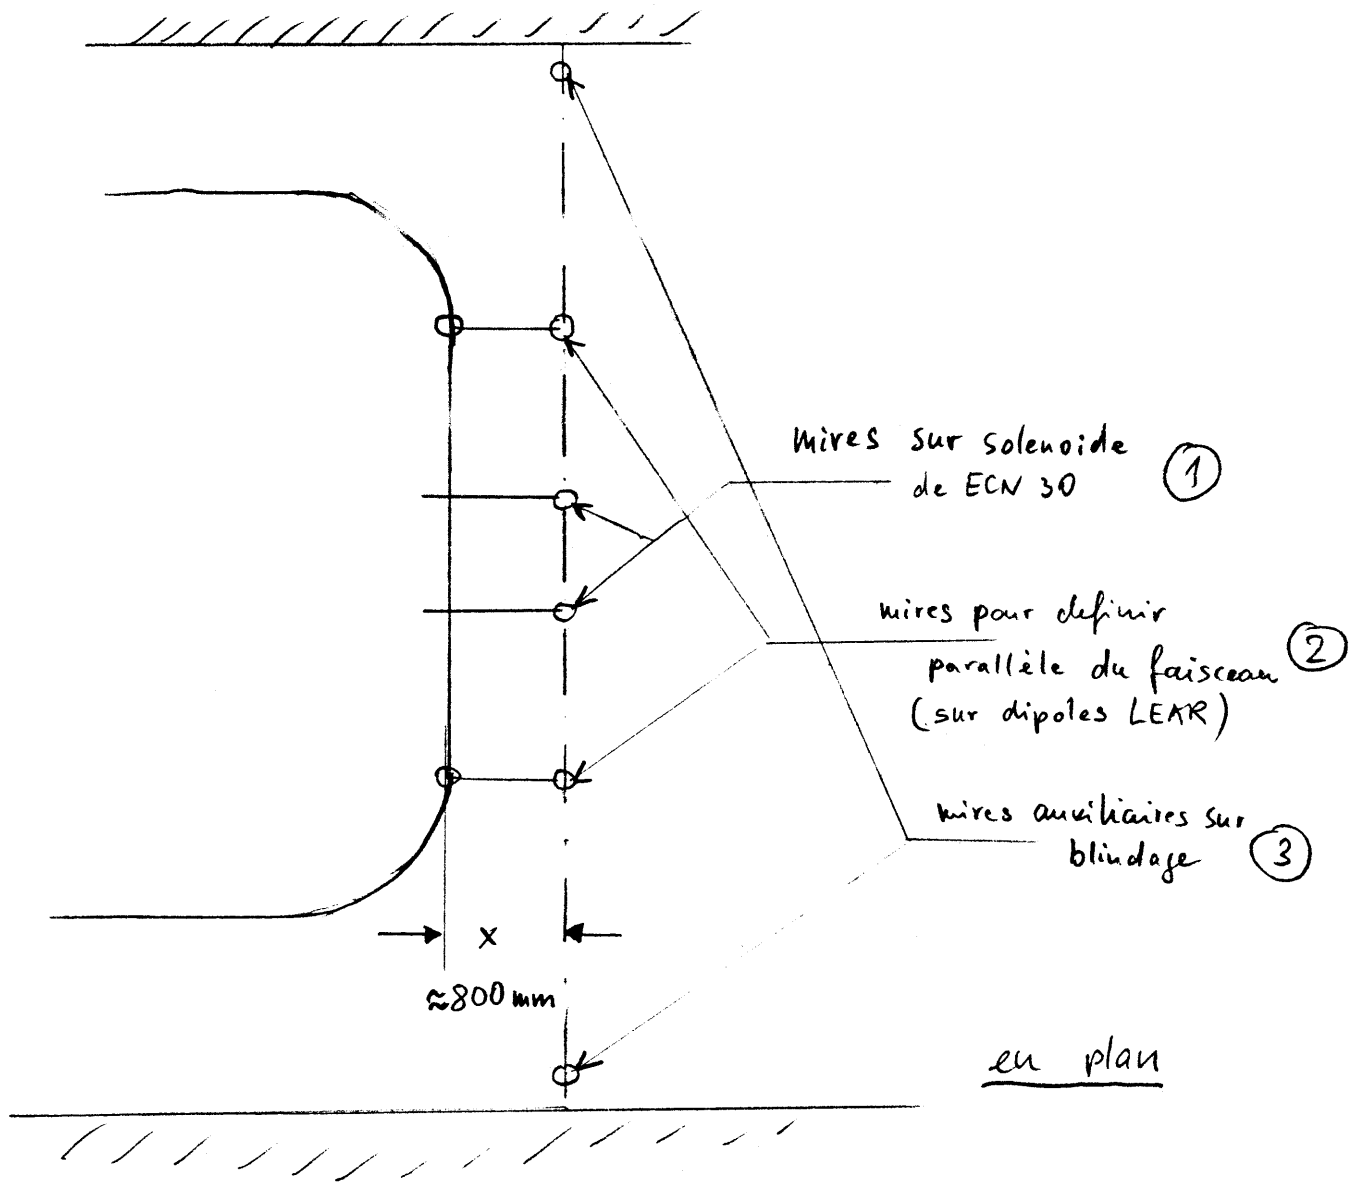 mires sur solenoide
de ECN 30
1
mires pour definir
parallèle du faisceau
(sur dipoles LEAR)
2
mires auxiliaires sur
blindage
3
x
≈800 mm
en plan